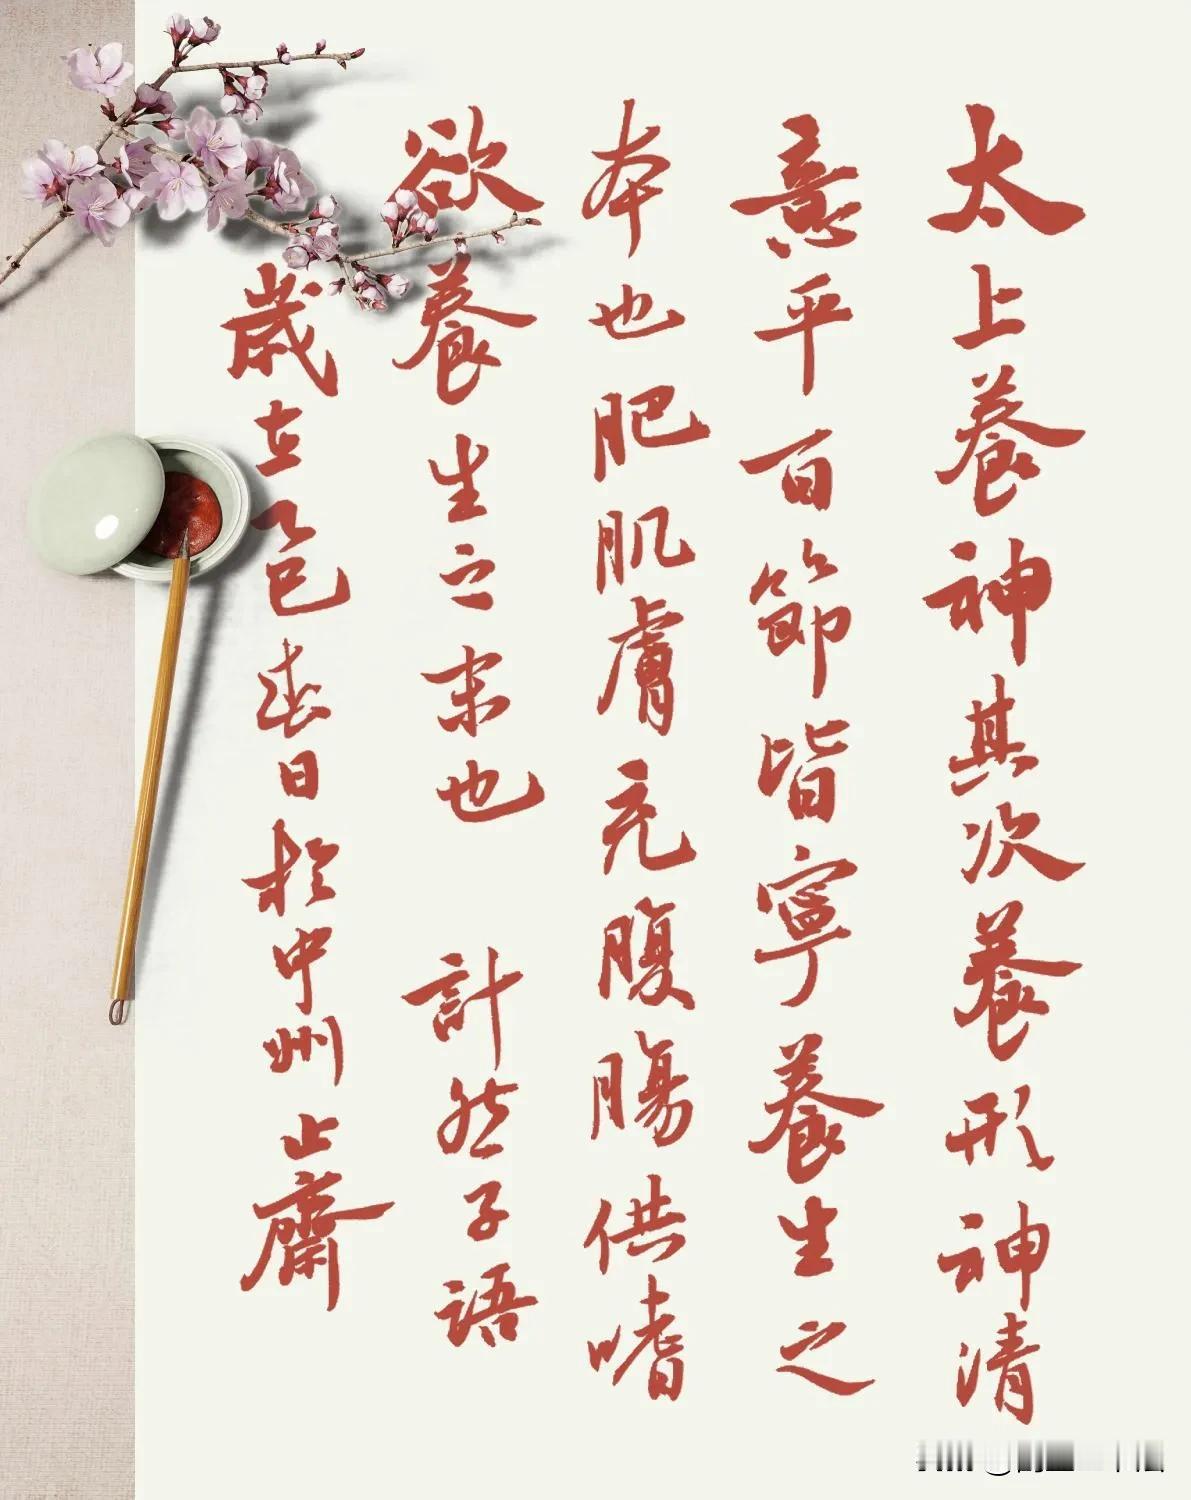 太上養神其次養形神清
意平百節皆寧養生之
本也肥肌膚充腹腸供嗜
欲養生之末也 計然子語
歲在乙巳春日於中州止齋